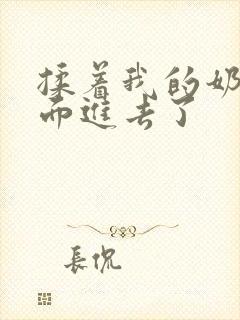 揉着我的奶
而進去了
長侃